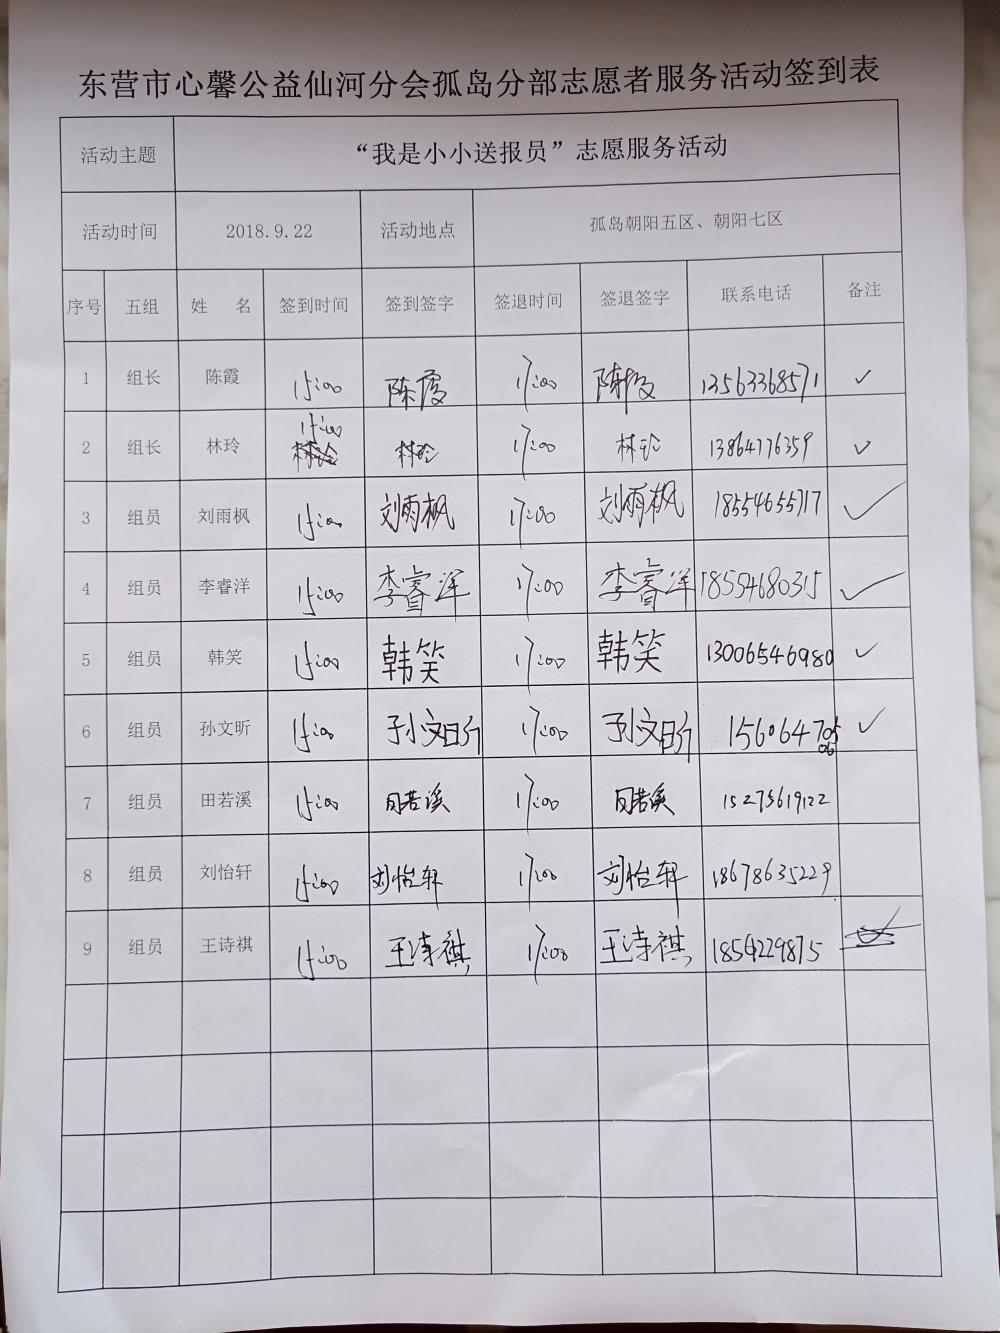 东营市心馨公益仙河分会孤岛分部志愿者服务活动签到表
活动主题 “我是小小送报员”志愿服务活动
活动时间 2018.9.22 活动地点 孤岛朝阳五区、朝阳七区
序号 五组 姓 名 签到时间 签到签字 签退时间 签退签字 联系电话 备注
1 组长 陈霞 15:00 陈霞 17:00 陈霞 13563368571 ✓
2 组长 林玲 15:00 林玲 17:00 林玲 13864776359 ✓
3 组员 刘雨枫 15:00 刘雨枫 17:00 刘雨枫 18554655717 ✓
4 组员 李睿洋 15:00 李睿洋 17:00 李睿洋 18554680315 ✓
5 组员 韩笑 15:00 韩笑 17:00 韩笑 13006546980 ✓
6 组员 孙文昕 15:00 孙文昕 17:00 孙文昕 ✓
7 组员 田若溪 15:00 田若溪 17:00 田若溪 15275619122
8 组员 刘怡轩 15:00 刘怡轩 17:00 刘怡轩 18678635229
9 组员 王诗祺 15:00 王诗祺 17:00 王诗祺